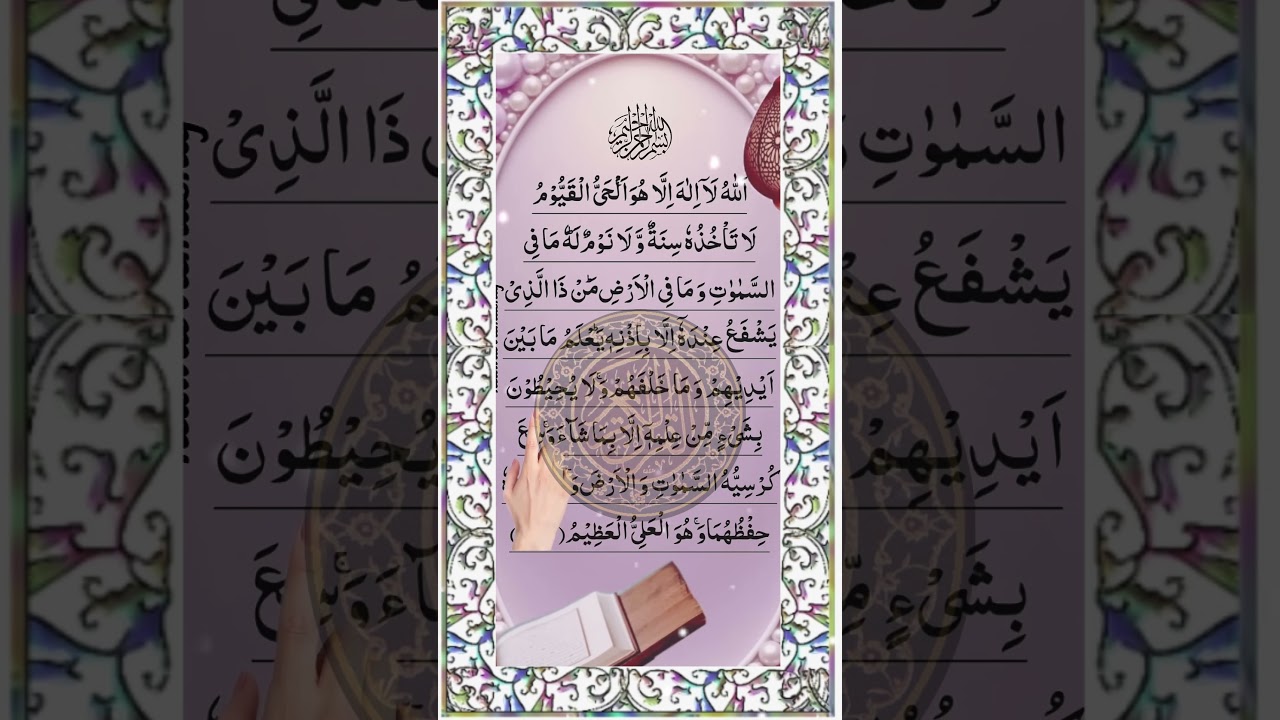 بسم الله الرحمن الرحيم
اَللّٰهُ لَآ اِلٰهَ اِلَّا هُوَ اَلْحَيُّ الْقَيُّوْمُ
لَا تَاْخُذُهٗ سِنَةٌ وَّلَا نَوْمٌ لَهٗ مَا فِى
السَّمٰوٰتِ وَمَا فِى الْاَرْضِ مَنْ ذَا الَّذِىْ
يَشْفَعُ عِنْدَهٗٓ اِلَّا بِاِذْنِهٖ يَعْلَمُ مَا بَيْنَ
اَيْدِيْهِمْ وَمَا خَلْفَهُمْ وَلَا يُحِيْطُوْنَ
بِشَىْءٍ مِّنْ عِلْمِهٖٓ اِلَّا بِمَا شَآءَ
كُرْسِيُّهُ السَّمٰوٰتِ وَالْاَرْضَ
حِفْظُهُمَا وَهُوَ الْعَلِىُّ الْعَظِيْمُ